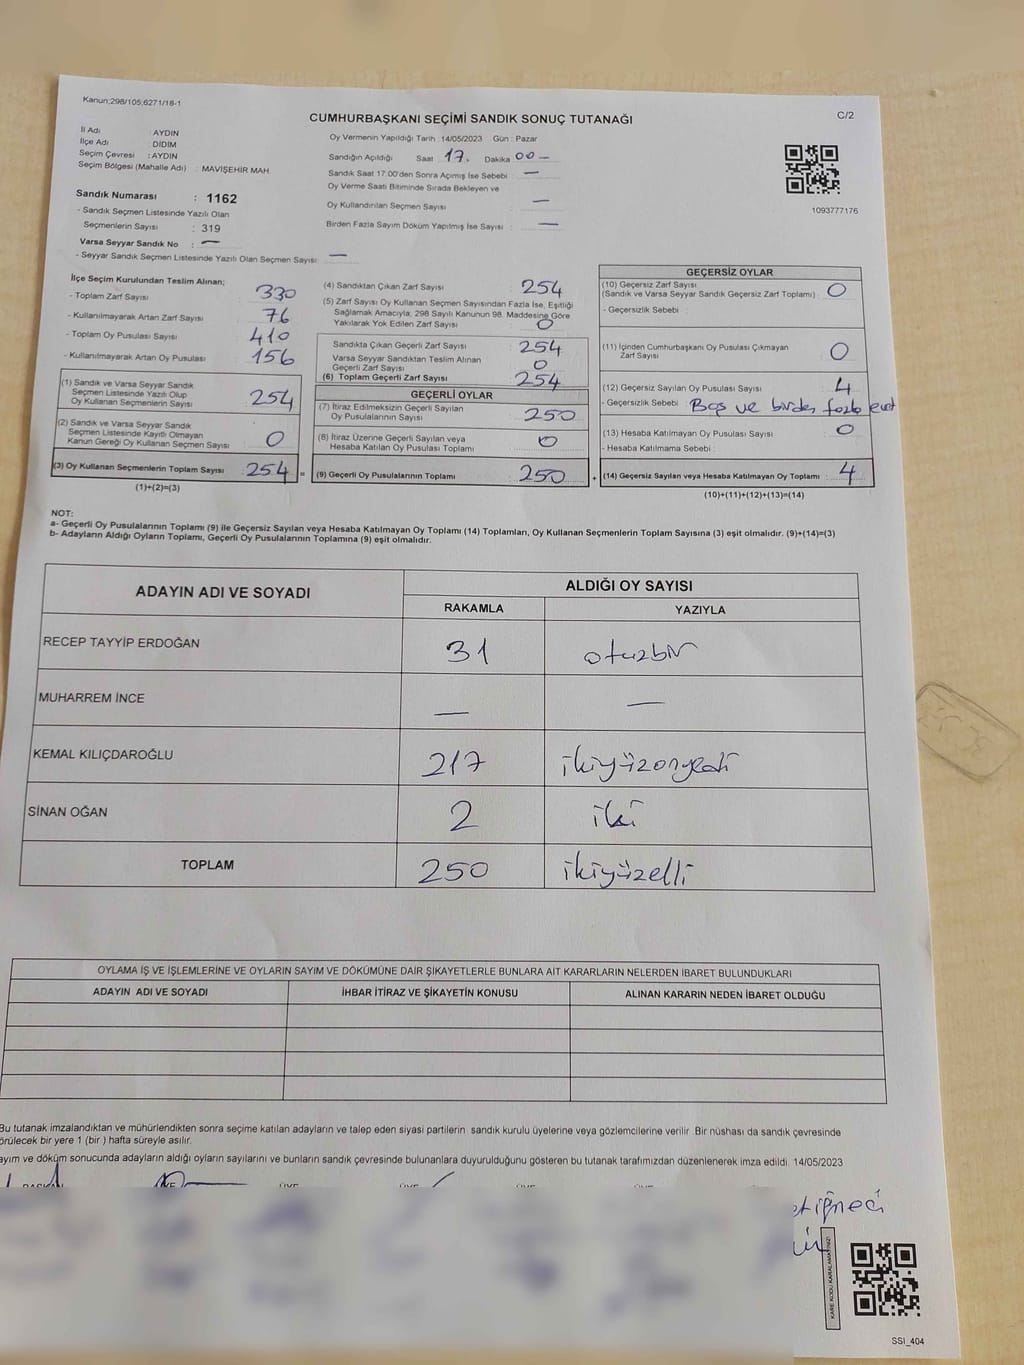 Kanun;298/105;6271/18-1
C/2
CUMHURBAŞKANI SEÇİMİ SANDIK SONUÇ TUTANAĞI
İl Adı : AYDIN
İlçe Adı : DİDİM
Seçim Çevresi : AYDIN
Seçim Bölgesi (Mahalle Adı) : MAVİŞEHİR MAH.
Sandık Numarası : 1162
- Sandık Seçmen Listesinde Yazılı Olan
Seçmenlerin Sayısı : 319
Varsa Seyyar Sandık No : —
- Seyyar Sandık Seçmen Listesinde Yazılı Olan Seçmen Sayısı: —
Oy Vermenin Yapıldığı Tarih : 14/05/2023 Gün : Pazar
Sandığın Açıldığı Saat 17. Dakika 00 —
Sandık Saat 17.00'den Sonra Açımış İse Sebebi : —
Oy Verme Saati Bitiminde Sırada Bekleyen ve
Oy Kullandırılan Seçmen Sayısı : —
Birden Fazla Sayım Döküm Yapılmış İse Sayısı : —
1093777176
İlçe Seçim Kurulundan Teslim Alınan;
- Toplam Zarf Sayısı : 330
- Kullanılmayarak Artan Zarf Sayısı : 76
- Toplam Oy Pusulası Sayısı : 410
- Kullanılmayarak Artan Oy Pusulası : 156
(1) Sandık ve Varsa Seyyar Sandık
Seçmen Listesinde Yazılı Olup
Oy Kullanan Seçmenlerin Sayısı : 254
(2) Sandık ve Varsa Seyyar Sandık
Seçmen Listesinde Kayıtlı Olmayan
Kanun Gereği Oy Kullanan Seçmen Sayısı : 0
(3) Oy Kullanan Seçmenlerin Toplam Sayısı : 254 =
(1)+(2)=(3)
(4) Sandıktan Çıkan Zarf Sayısı : 254
(5) Zarf Sayısı Oy Kullanan Seçmen Sayısından Fazla İse, Eşitliği
Sağlamak Amacıyla, 298 Sayılı Kanunun 98. Maddesine Göre
Yakılarak Yok Edilen Zarf Sayısı : 0
Sandıkta Çıkan Geçerli Zarf Sayısı : 254
Varsa Seyyar Sandıktan Teslim Alınan
Geçerli Zarf Sayısı : 0
(6) Toplam Geçerli Zarf Sayısı : 254
GEÇERLİ OYLAR
(7) İtiraz Edilmeksizin Geçerli Sayılan
Oy Pusulası Sayısı : 250
(8) İtiraz Üzerine Geçerli Sayılan veya
Hesaba Katılan Oy Pusulası Toplamı : 0
(9) Geçerli Oy Pusulalarının Toplamı : 250 +
GEÇERSİZ OYLAR
(10) Geçersiz Zarf Sayısı :
(Sandık ve Varsa Seyyar Sandık Geçersiz Zarf Toplamı) 0
- Geçersizlik Sebebi :
(11) İçinden Cumhurbaşkanı Oy Pusulası Çıkmayan
Zarf Sayısı : 0
(12) Geçersiz Sayılan Oy Pusulası Sayısı : 4
- Geçersizlik Sebebi : Boş ve birden fazla evet
(13) Hesaba Katılmayan Oy Pusulası Sayısı : 0
- Hesaba Katılmama Sebebi :
(14) Geçersiz Sayılan veya Hesaba Katılmayan Oy Toplamı : 4
(10)+(11)+(12)+(13)=(14)
NOT:
a- Geçerli Oy Pusulalarının Toplamı (9) ile Geçersiz Sayılan veya Hesaba Katılmayan Oy Toplamı (14) Toplamları, Oy Kullanan Seçmenlerin Toplam Sayısına (3) eşit olmalıdır. (9)+(14)=(3)
b- Adayların Aldığı Oyların Toplamı, Geçerli Oy Pusulalarının Toplamına (9) eşit olmalıdır.
ADAYIN ADI VE SOYADI ALDIĞI OY SAYISI
RAKAMLA YAZIYLA
RECEP TAYYİP ERDOĞAN 31 otuzbir
MUHARREM İNCE — —
KEMAL KILIÇDAROĞLU 217 ikiyüzonyedi
SİNAN OĞAN 2 iki
TOPLAM 250 ikiyüzelli
OYLAMA İŞ VE İŞLEMLERİNE VE OYLARIN SAYIM VE DÖKÜMÜNE DAİR ŞİKAYETLERLE BUNLARA AİT KARARLARIN NELERDEN İBARET BULUNDUKLARI
ADAYIN ADI VE SOYADI İHBAR İTİRAZ VE ŞİKAYETİN KONUSU ALINAN KARARIN NEDEN İBARET OLDUĞU
Bu tutanak imzalandıktan ve mühürlendikten sonra seçime katılan adayların ve talep eden siyasi partilerin sandık kurulu üyelerine veya gözlemcilerine verilir. Bir nüshası da sandık çevresinde
örülecek bir yere 1 (bir) hafta süreyle asılır.
ayım ve döküm sonucunda adayların aldığı oyların sayılarını ve bunların sandık çevresinde bulunanlara duyurulduğunu gösteren bu tutanak tarafımızdan düzenlenerek imza edildi. 14/05/2023
SSI_404